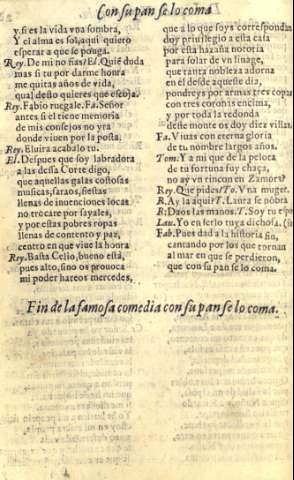 Con su pan se lo coma
y si es la vida vna sombra,
Y el alma es sol, aqui quiero
esperar a que se ponga.
Rey. De mi no fias? El. Quiẽ duda
mas si tu por darme honra
me quitas años de vida,
qual daño quieres que escoja.
Rey. Fabio ruegale. Fa. Señor
antes si el tiene memoria
de mis consejos no yra
donde viuen por la posta.
Rey. Eluira acabalo tu.
El. Despues que soy labradora
a las dessa Corte digo,
que aquellas galas costosas
musicas, saraos, fiestas
llenas de inuenciones locas
no trecare por sayales,
y por estas pobres ropas
llenas de contento y paz,
centro en que viue la honra
Rey. Basta Celio, bueno està,
pues alto, sino os prouoca
mi poder hareos mercedes,
que a lo que soys correspondan
doy priuilegio a esta casa
por esta hazaña notoria
para solar de vn linage,
que tanta nobleza adorna
en el desde aqueste dia,
pondreys por armas tres copas
con tres coronas encima,
y por toda la redonda
deste monte os doy diez villas.
Fa. Viuas con eterna gloria
de tu nombre largos años.
Tom. Y a mi que de la pelota
de tu fortuna fuy chaça,
no ay vn rincon en Zamora?
Rey. Que pides? To. Vna muger.
R. Ay la aqui? T. Laura se nõbra
R. Daos las manos. T. Soy tu espo
Lau. Yo en serlo tuya dichosa.
Fab. Pues dad a la historia fin,
cantando por los que tornan
al mar en que se perdieron,
que con su pan se lo coma.
Fin de la famosa comedia con su pan se lo coma.